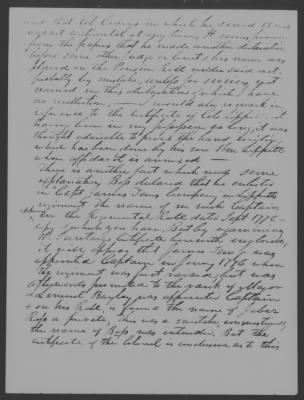 and that Col Lippitts in which he served 13 mos
was not continental at any time. It seems however
from the papers that he made another declaration
before some other judge or court & his name was
placed on the Pension Roll under said act,
probably by mistake, unless for service not
named in this declaration of which I have
no recollection. — I would also remark in
reference to the certificate of Col Lippitt, it
having been in my possession so long, it was
thought advisable to prove the hand writing
which has been done by his son Wm Lippitt
whose affidavit is annexed —
There is another fact which needs some
explanation. Ross declared that he enlisted
in Capt James Tews Company in Lippitts
regiment the name of no such Captain
in the Regimental Roll dated Sept 1776 a
copy of which you have. But by examining
the Secretarys certificate herewith enclosed,
it will appear that James Tew was
appointed Captain in Jany 1776 when
the regiment was first raised, but was
afterwards promoted to the rank of Major
& Lemuel Bayley was appointed Captain
& on his Roll is found the name of Jabez
Ross a private, this was a mistake, unquestionably
the name of Ross was intended. But the
certificate of the Colonel is conclusive as to this